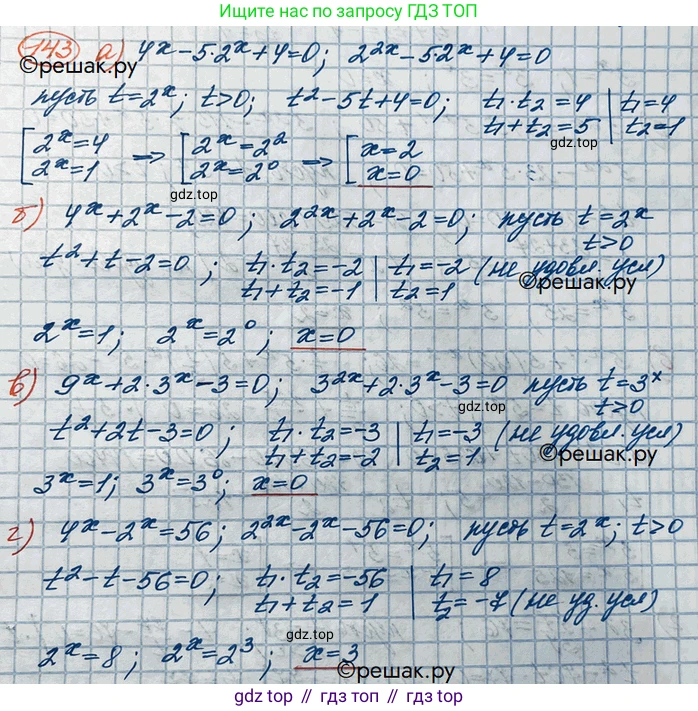 Ищите ответы по запросу ГДЗ ТОП
143 а) 4ˣ-5·2ˣ+4=0; 2²ˣ-5·2ˣ+4=0
©решак.ру
пусть t=2ˣ; t>0; t²-5t+4=0; t₁·t₂=4 | t₁=4
t₁+t₂=5 | t₂=1
©решак.ру
[2ˣ=4 => [2ˣ=2² => [x=2
2ˣ=1 2ˣ=2⁰ x=0
gdz.top
б) 4ˣ+2ˣ-2=0; 2²ˣ+2ˣ-2=0; пусть t=2ˣ
t>0
t²+t-2=0; t₁·t₂=-2 | t₁=-2 (не удовл. усл)
t₁+t₂=-1 | t₂=1
©решак.ру
2ˣ=1; 2ˣ=2⁰; x=0
в) 9ˣ+2·3ˣ-3=0; 3²ˣ+2·3ˣ-3=0 пусть t=3ˣ
gdz.top
t>0
t²+2t-3=0; t₁·t₂=-3 | t₁=-3 (не удовл. усл)
t₁+t₂=-2 | t₂=1
©решак.ру
3ˣ=1; 3ˣ=3⁰; x=0
г) 4ˣ-2ˣ=56; 2²ˣ-2ˣ-56=0; пусть t=2ˣ; t>0
t²-t-56=0; t₁·t₂=-56 | t₁=8
t₁+t₂=1 | t₂=-7 (не уд. усл)
gdz.top
2ˣ=8; 2ˣ=2³; x=3
©решак.ру
gdz top // гдз топ // gdz.top